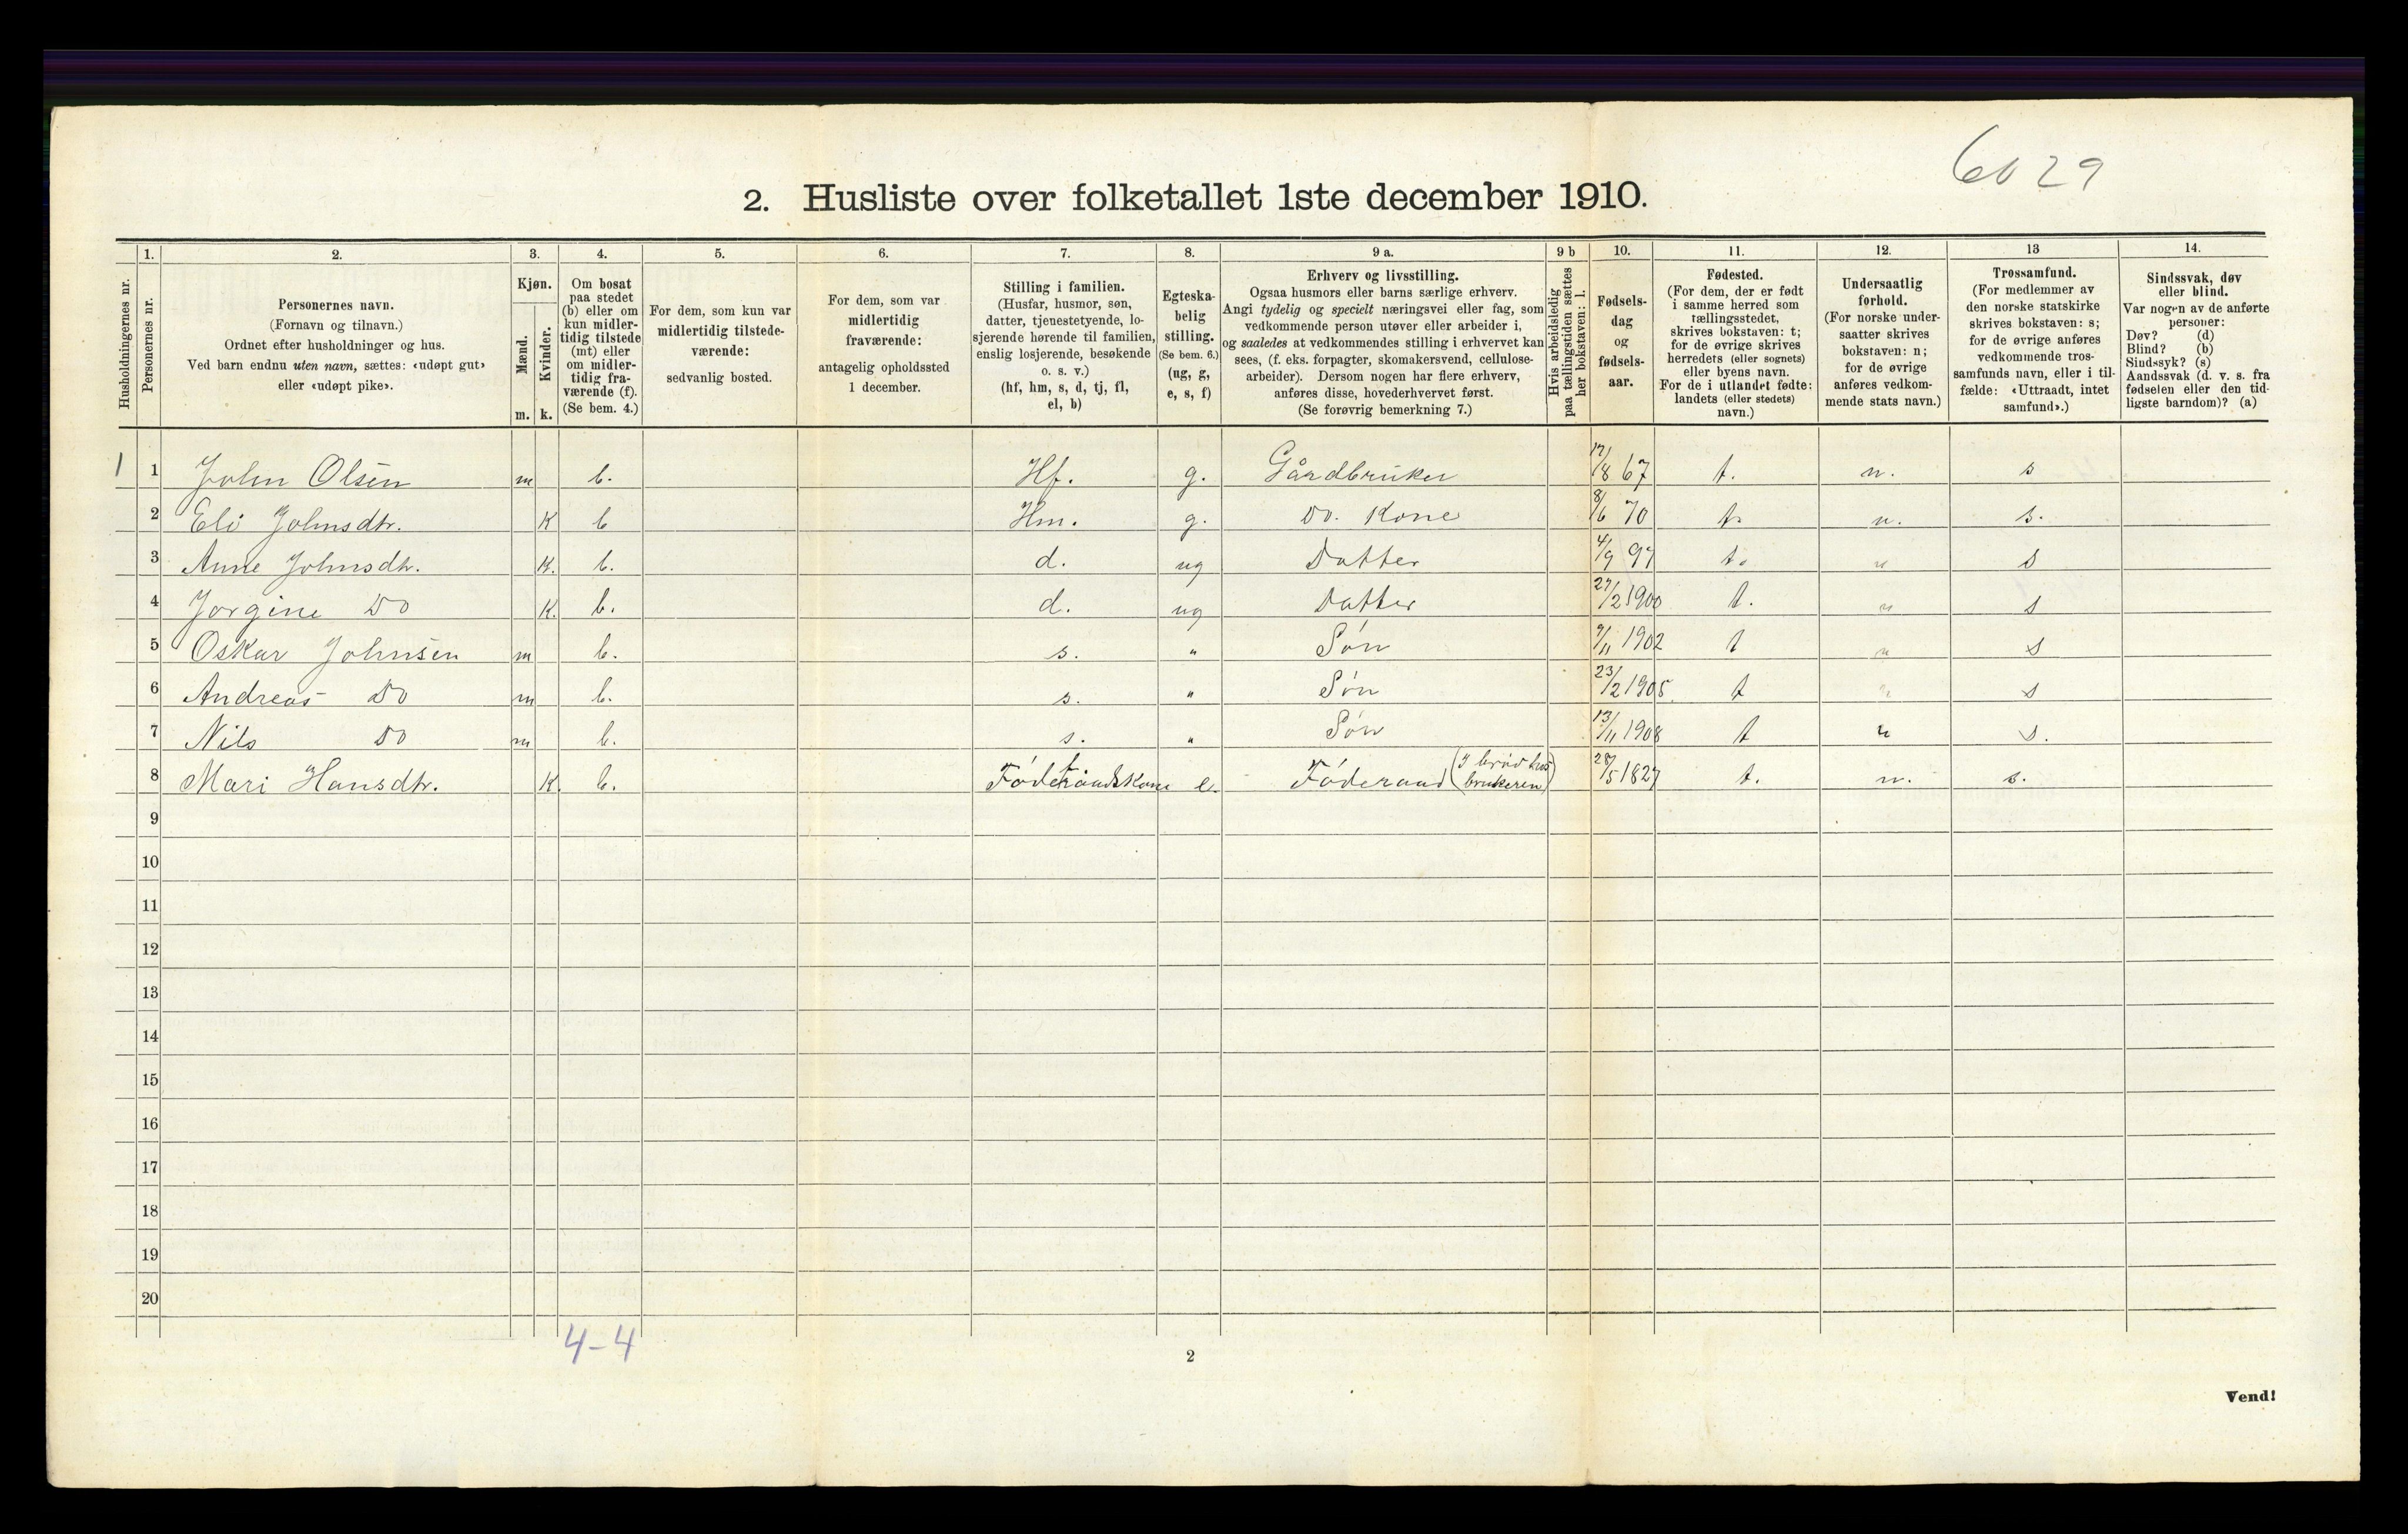 6029
2. Husliste over folketallet 1ste december 1910.
Husholdningernes nr.
1.
Personernes nr.
2.
Personernes navn.
(Fornavn og tilnavn.)
Ordnet efter husholdninger og hus.
Ved barn endnu uten navn, sættes: «udøpt gut»
eller «udøpt pike».
3.
Kjøn.
Mænd.
m.
Kvinder.
k.
4.
Om bosat
paa stedet
(b) eller om
kun midler-
tidig tilstede
(mt) eller
om midler-
tidig fra-
værende (f).
(Se bem. 4.)
5.
For dem, som kun var
midlertidig tilstede-
værende:
sedvanlig bosted.
6.
For dem, som var
midlertidig
fraværende:
antagelig opholdssted
1 december.
7.
Stilling i familien.
(Husfar, husmor, søn,
datter, tjenestetyende, lo-
sjerende hørende til familien,
enslig losjerende, besøkende
o. s. v.)
(hf, hm, s, d, tj, fl,
el, b)
8.
Egteska-
belig
stilling.
(Se bem. 6.)
(ug, g,
e, s, f)
9 a.
Erhverv og livsstilling.
Ogsaa husmors eller barns særlige erhverv.
Angi tydelig og specielt næringsvei eller fag, som
vedkommende person utøver eller arbeider i,
og saaledes at vedkommendes stilling i erhvervet kan
sees, (f. eks. forpagter, skomakersvend, cellulose-
arbeider). Dersom nogen har flere erhverv,
anføres disse, hovederhvervet først.
(Se forøvrig bemerkning 7.)
9 b
Hvis arbeidsledig
paa tællingstiden sættes
her bokstaven: l.
10.
Fødsels-
dag
og
fødsels-
aar.
11.
Fødested.
(For dem, der er født
i samme herred som
tællingsstedet,
skrives bokstaven: t;
for de øvrige skrives
herredets (eller sognets)
eller byens navn.
For de i utlandet fødte:
landets (eller stedets)
navn.)
12.
Undersaatlig
forhold.
(For norske under-
saatter skrives
bokstaven: n;
for de øvrige
anføres vedkom-
mende stats navn.)
13
Trossamfund.
(For medlemmer av
den norske statskirke
skrives bokstaven: s;
for de øvrige anføres
vedkommende tros-
samfunds navn, eller i til-
fælde: «Uttraadt, intet
samfund».)
14.
Sindssvak, døv
eller blind.
Var nogen av de anførte
personer:
Døv? (d)
Blind? (b)
Sindssyk? (s)
Aandssvak (d. v. s. fra
fødselen eller den tid-
ligste barndom)? (a)
1 1 John Olsen m b. Hf. g. Gårdbruker 17/8 67 t. n. s
2 Eli Johnsdtr. K b Hm. g. Do. Kone 8/6 70 t. n. s.
3 Anne Johnsdtr. K. b. d. ug Datter 4/9 97 t. n s
4 Jorgine Do K. b. d. ug Datter 27/2 1900 t. n s
5 Oskar Johnsen m b. s. " Søn 9/11 1902 t n s
6 Andreas Do m b. s. " Søn 23/2 1905 t n s
7 Nils Do m b. s. " Søn 13/11 1908 t n s.
8 Mari Hansdtr. K. b. Føderaadskone e. Føderaad (I brød hos brukeren) 28/5 1827 t. n. s.
9
10
11
12
13
14
15
16
17
18
19
20
4-4
2
Vend!